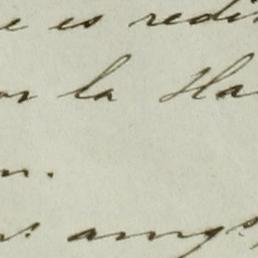 e es redi
or la Ha
n.
s. amgs,